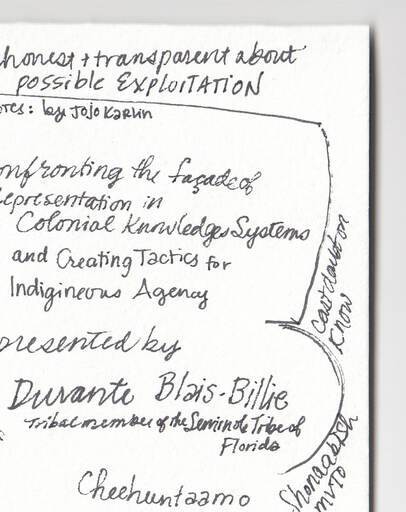 honest + transparent about
possible EXPLOITATION
by JoJo Karlin
onfronting the façade of
epresentation in
Colonial Knowledges Systems
and Creating Tactics for
Indigineous Agency
presented by
Durante Blais-Billie
Tribal member of the Seminole Tribe of
Florida
Cheehuntaamo
cast doubt on
Know
Shonaabish
mvto